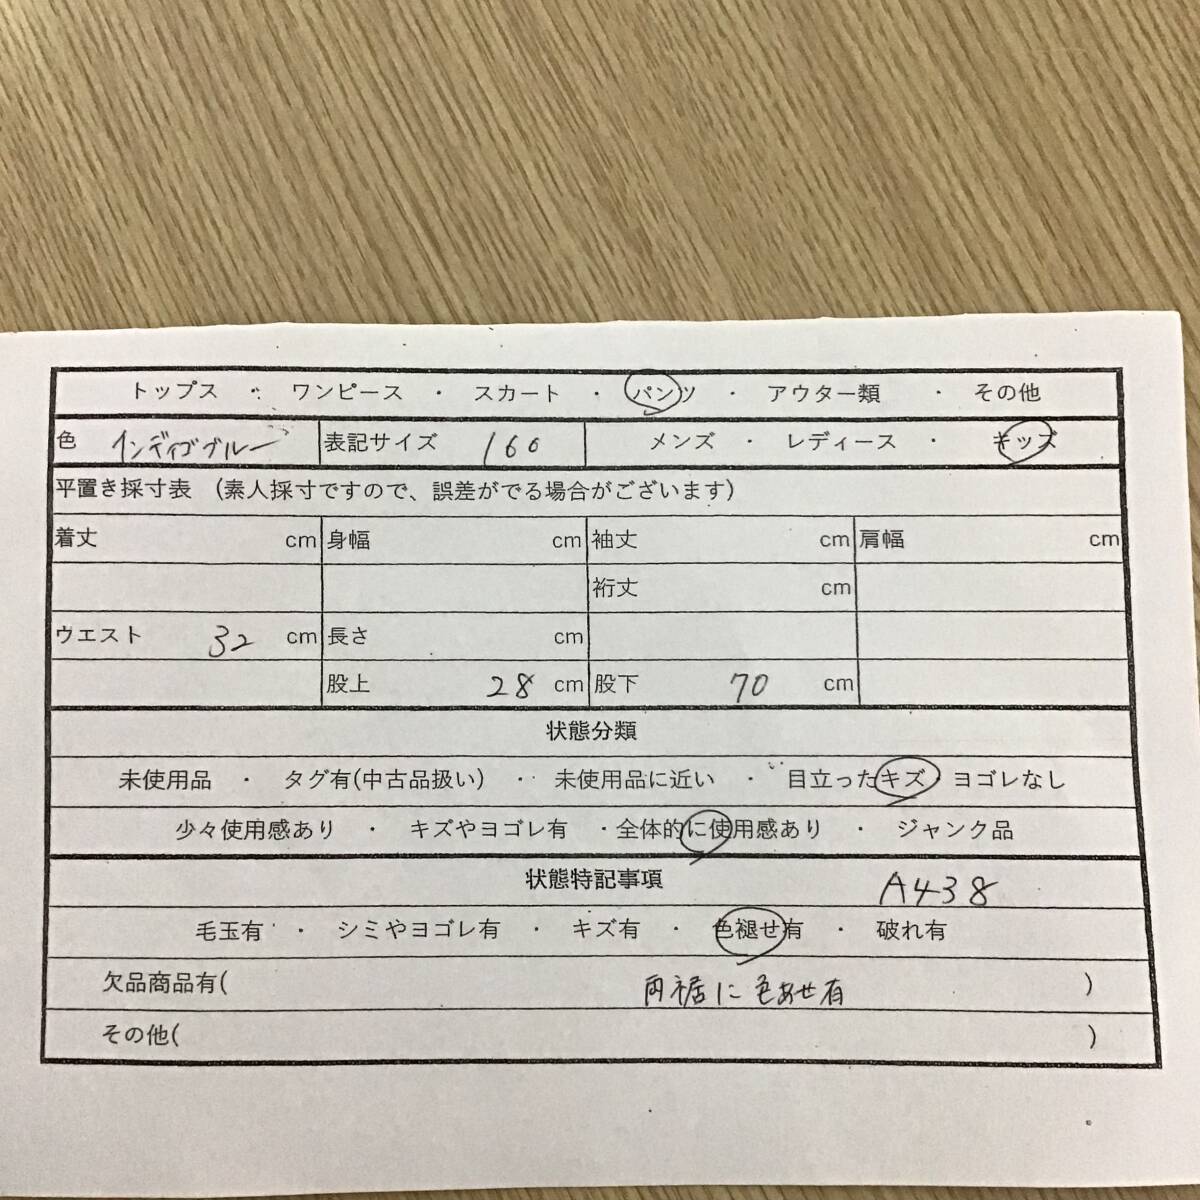 トップス ・ ワンピース ・ スカート ・ パンツ ・ アウター類 ・ その他
色 インディゴブルー 表記サイズ 160 メンズ ・ レディース ・ キッズ
平置き採寸表 (素人採寸ですので、誤差がでる場合がございます)
着丈 cm 身幅 cm 袖丈 cm 肩幅 cm
裄丈 cm
ウエスト 32 cm 長さ cm
股上 28 cm 股下 70 cm
状態分類
未使用品 ・ タグ有(中古品扱い) ・ 未使用品に近い ・ 目立ったキズ ヨゴレなし
少々使用感あり ・ キズやヨゴレ有 ・全体的に使用感あり ・ ジャンク品
状態特記事項 A438
毛玉有 ・ シミやヨゴレ有 ・ キズ有 ・ 色褪せ有 ・ 破れ有
欠品商品有( 両裾に色あせ有 )
その他( )